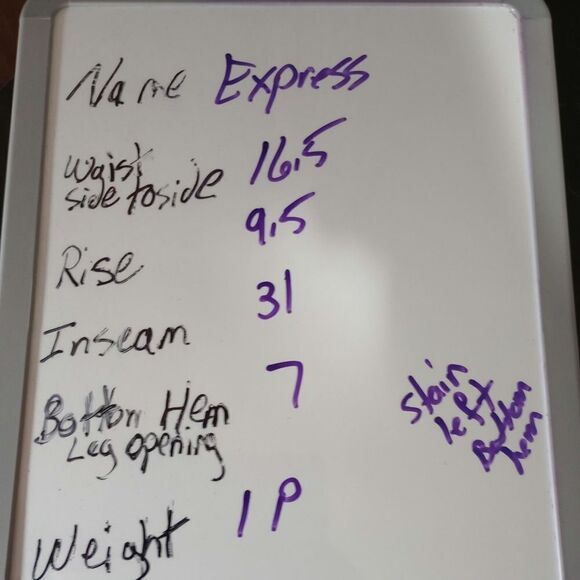 Name Express
Waist
side to side 16.5
Rise 9.5
Inseam 31
Bottom Hem 7
Leg opening
Stain
left
Bottom
hem
Weight 1 P